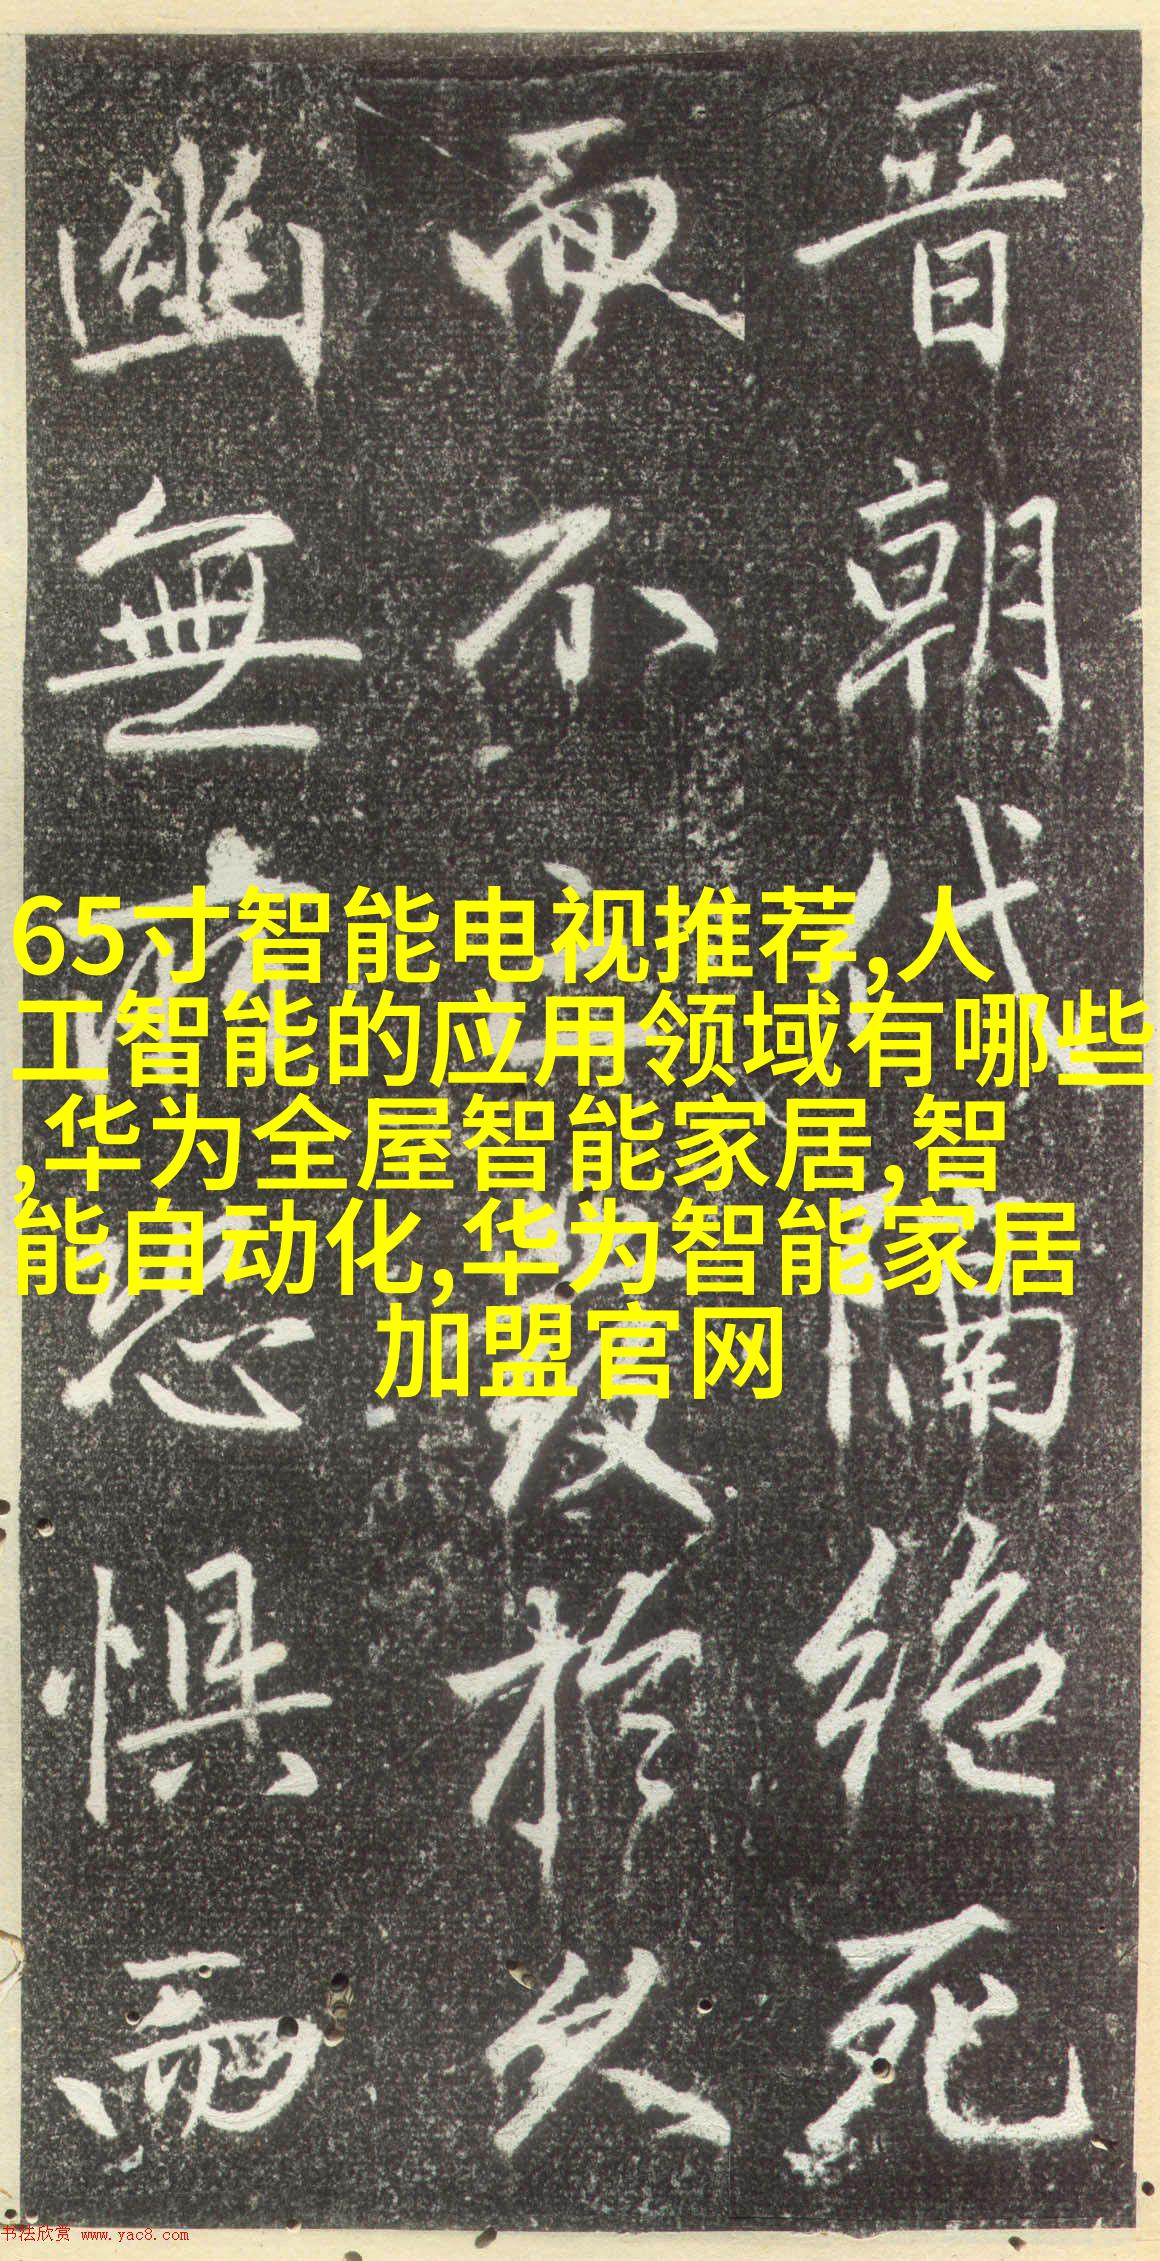 晋朝代隔絶死
而不於久
幽無惧而
65寸智能电视推荐,人
工智能的应用领域有哪些
,华为全屋智能家居,智
能自动化,华为智能家居
加盟官网
书法欣赏 www.yac8.com